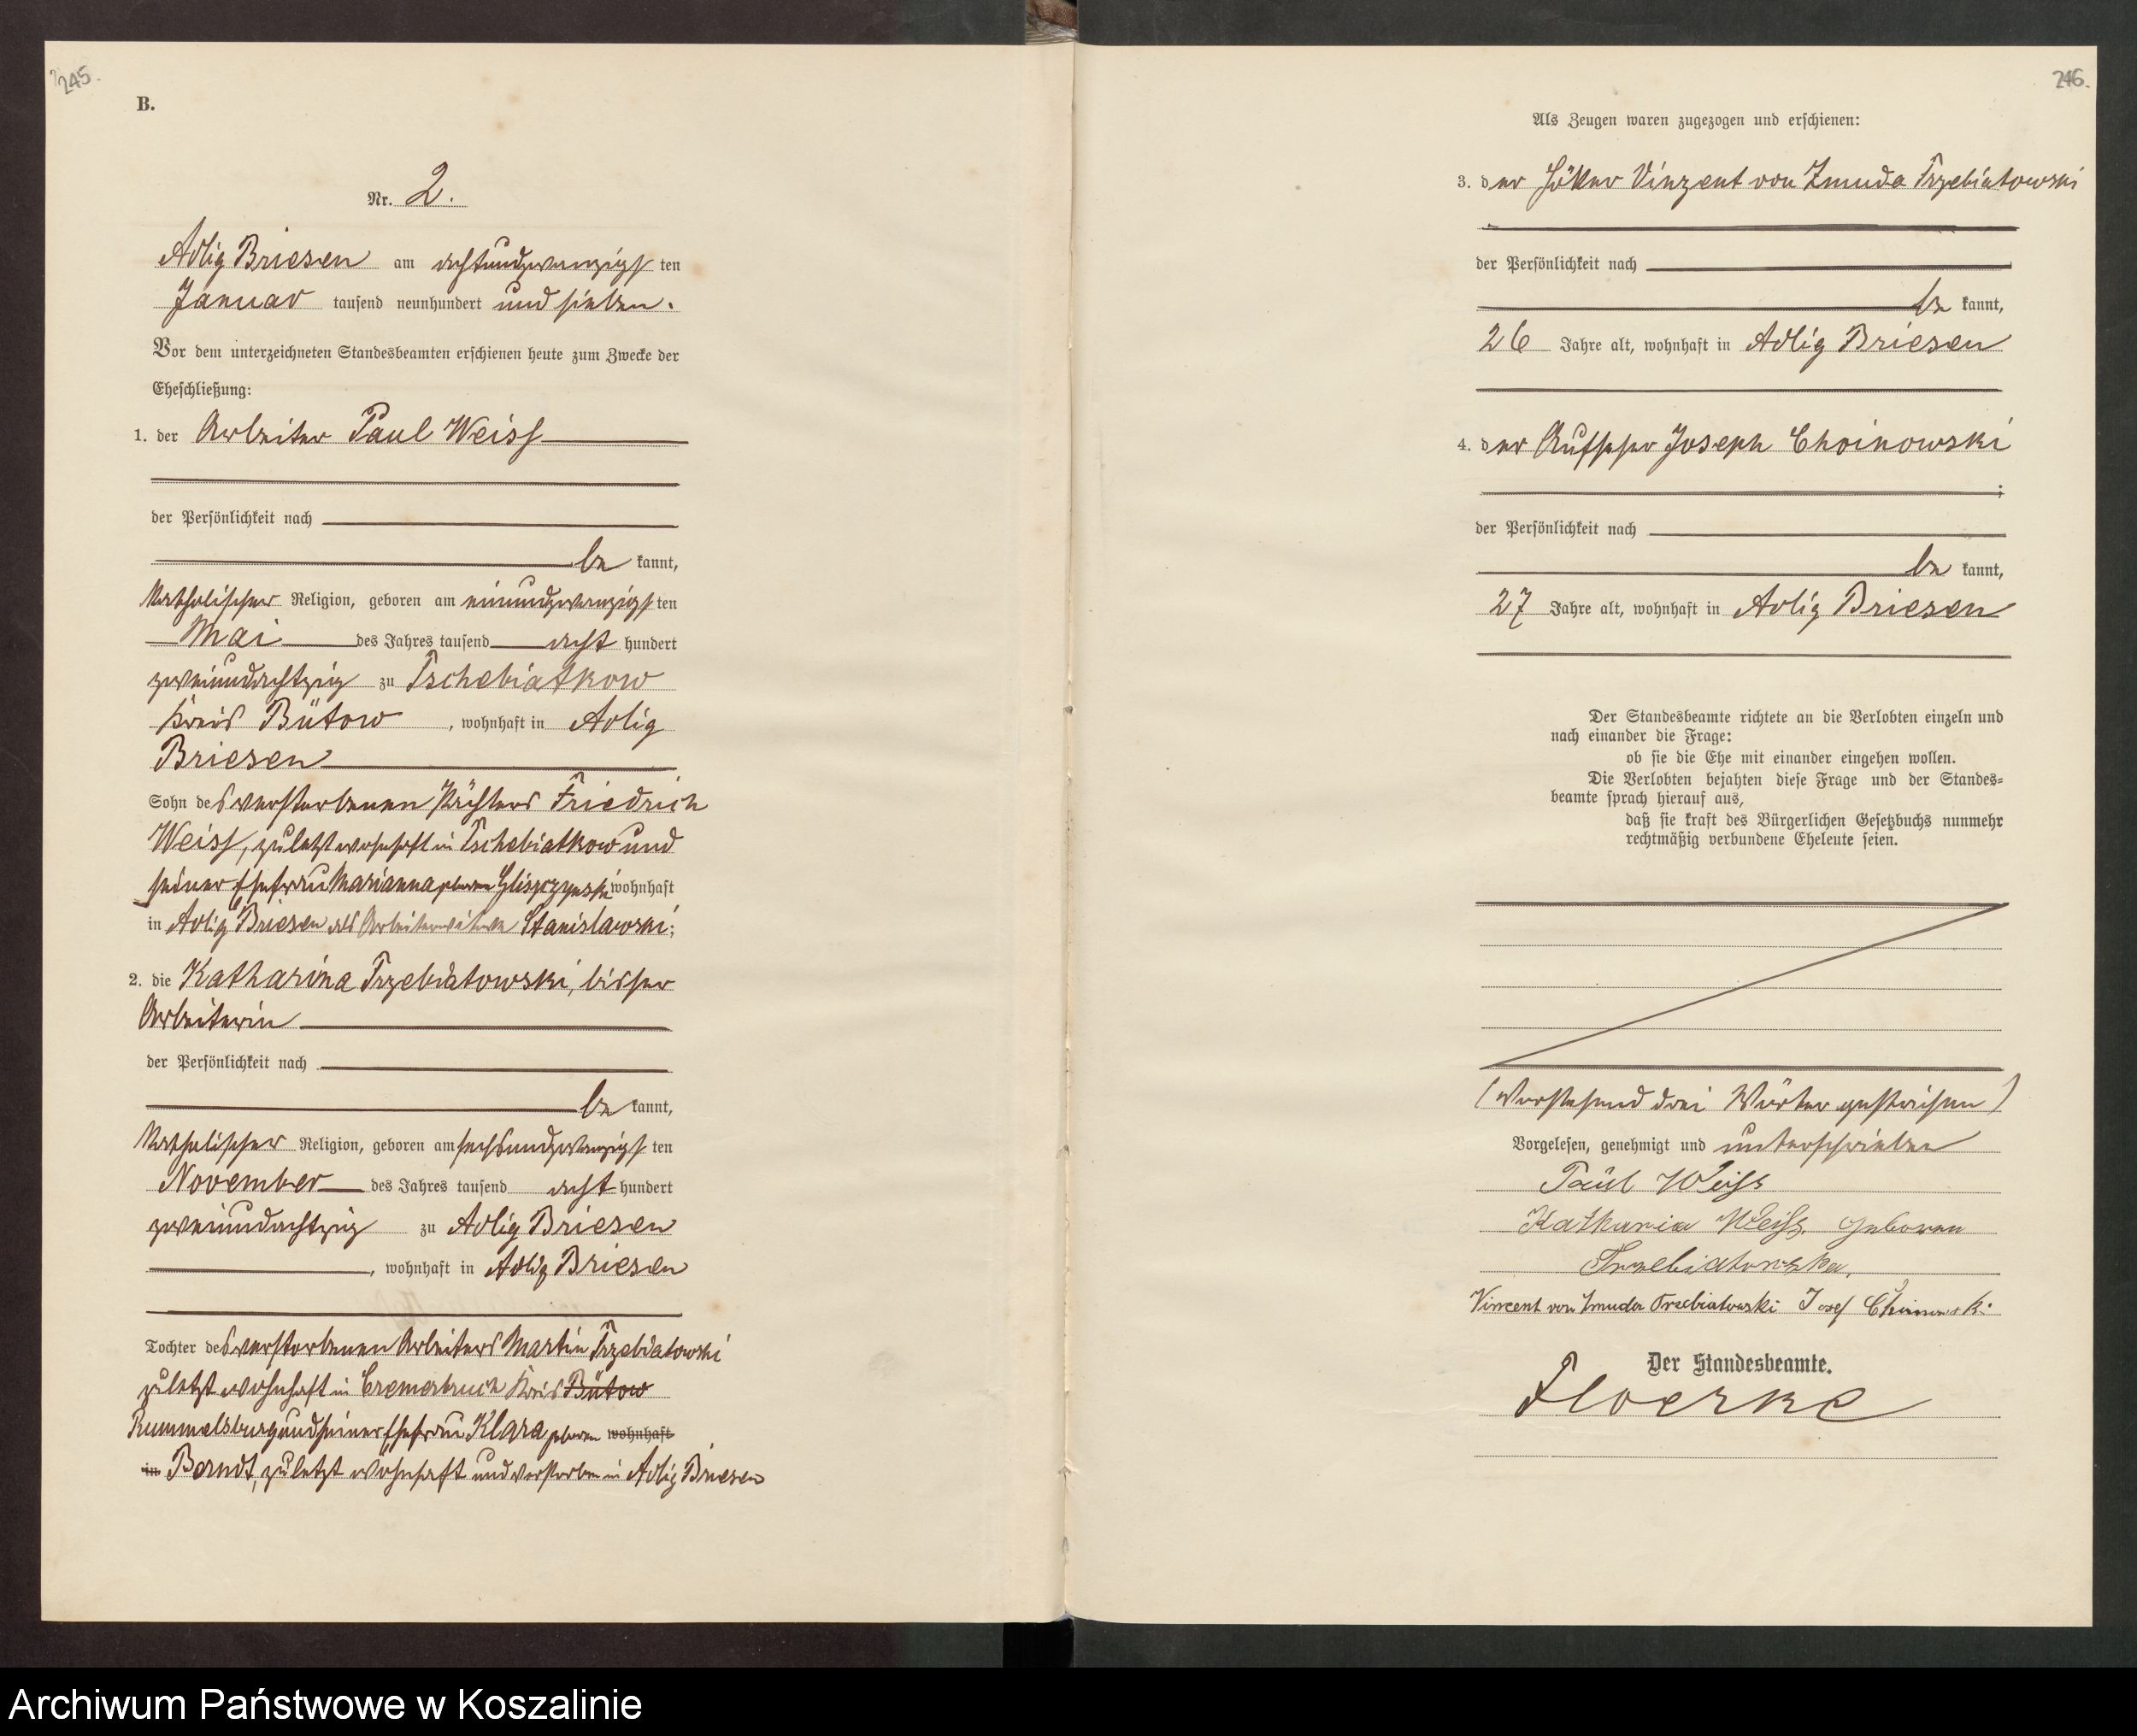 245.
B.
Nr. 2.
Adlig Briesen am achtundzwanzigsten
Januar tausend neunhundert und sieben.
Vor dem unterzeichneten Standesbeamten erschienen heute zum Zwecke der
Eheschließung:
1. der Arbeiter Paul Weiss
der Persönlichkeit nach
be kannt,
katholischer Religion, geboren am einundzwanzigsten
Mai des Jahres tausend acht hundert
zweiundachtzig zu Tschebiatkow
Kreis Bütow, wohnhaft in Adlig
Briesen
Sohn des verstorbenen Pächters Friedrich
Weiss, zuletzt wohnhaft in Tschebiatkow und
seiner Ehefrau Marianna geboren Gliszczynski wohnhaft
in Adlig Briesen als Arbeiterwitwe Stanislawski;
2. die Katharina Trzebiatowski, bisher
Arbeiterin
der Persönlichkeit nach
be kannt,
katholischer Religion, geboren am sechsundzwanzigsten
November des Jahres tausend acht hundert
zweiundachtzig zu Adlig Briesen
, wohnhaft in Adlig Briesen
Tochter des verstorbenen Arbeiters Martin Trzebiatowski
zuletzt wohnhaft in Cremerbruch Kreis Bütow
Rummelsburg und seiner Ehefrau Klara geboren wohnhaft
in Berndt, zuletzt wohnhaft und verstorben in Adlig Briesen
246.
Als Zeugen waren zugezogen und erschienen:
3. der Höker Vinzent von Zmuda Trzebiatowski
der Persönlichkeit nach
be kannt,
26 Jahre alt, wohnhaft in Adlig Briesen
4. der Aufseher Joseph Choinowski
;
der Persönlichkeit nach
be kannt,
27 Jahre alt, wohnhaft in Adlig Briesen
Der Standesbeamte richtete an die Verlobten einzeln und
nach einander die Frage:
ob sie die Ehe mit einander eingehen wollen.
Die Verlobten bejahten diese Frage und der Standes-
beamte sprach hierauf aus,
daß sie kraft des Bürgerlichen Gesetzbuchs nunmehr
rechtmäßig verbundene Eheleute seien.
(Vorstehend drei Wörter gestrichen)
Vorgelesen, genehmigt und unterschrieben
Paul Weiss
Katharia Weiss, geboren
Trzebiatowska,
Vincent von Zmuda Trzebiatowski Josef
Der Standesbeamte.
Floerke
Archiwum Państwowe w Koszalinie